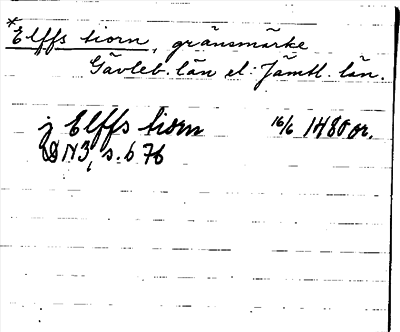 *Elffs tiorn, gränsmärke
Gävleb. län el. Jämtl. län.
j Elffs tiorn 16/6 1480 or.
DN3, s. 676